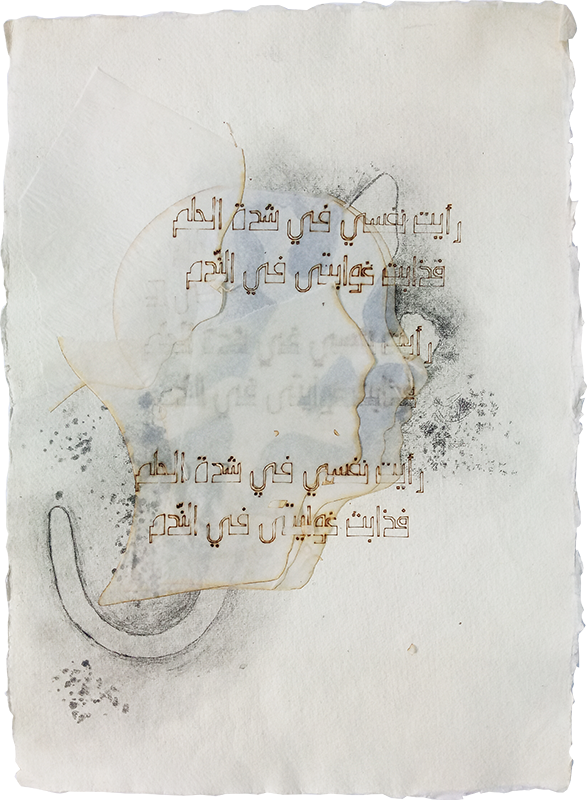 رأيت نفسي في شدة الحلم
فذابت غوايتي في النّدم
رأيت نفسي في شدة الحلم
فذابت غوايتي في النّدم
رأيت نفسي في شدة الحلم
فذابت غوايتي في النّدم